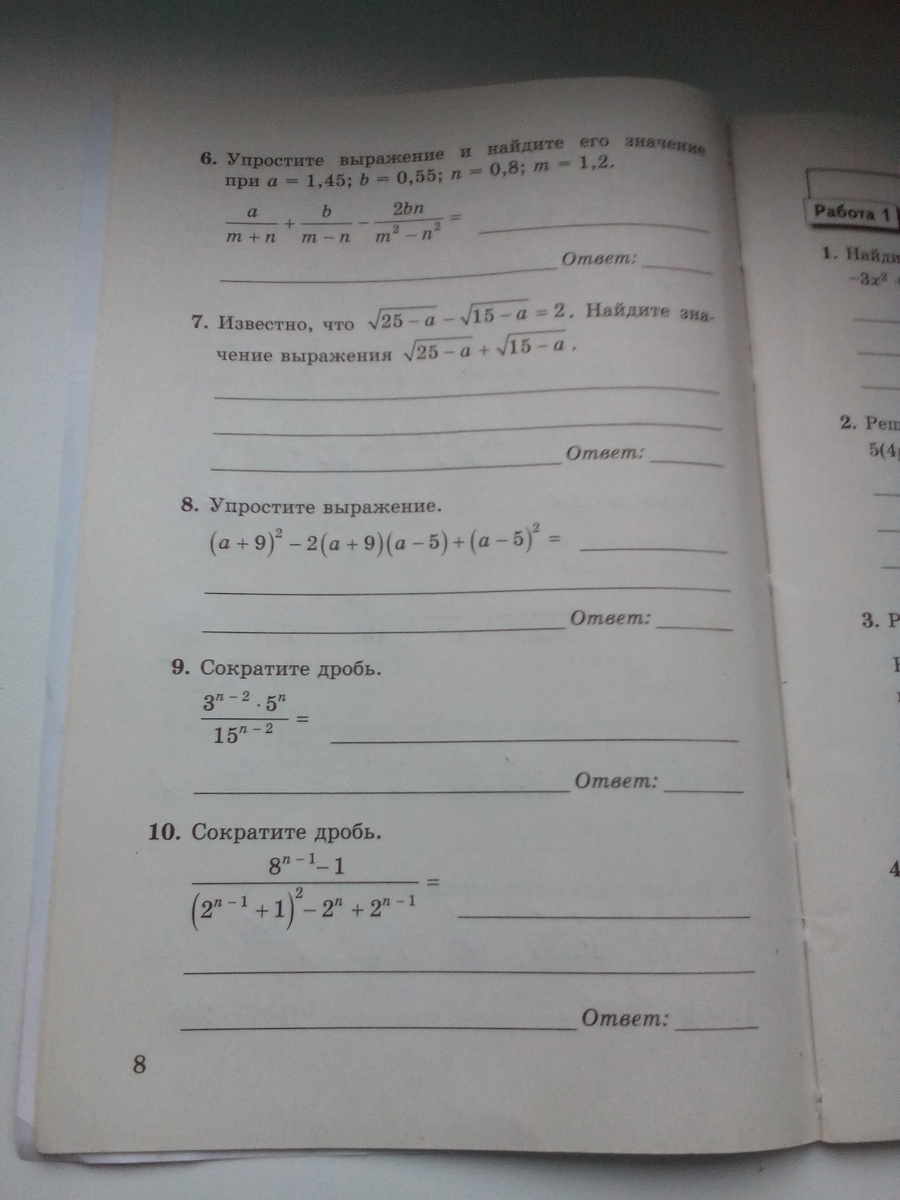 6. Упростите выражение и найдите его значение
при a = 1,45; b = 0,55; n = 0,8; m = 1,2.
a/(m + n) + b/(m − n) − 2bn/(m² − n²) =
Ответ:
7. Известно, что √(25 − a) − √(15 − a) = 2. Найдите зна-
чение выражения √(25 − a) + √(15 − a).
Ответ:
8. Упростите выражение.
(a + 9)² − 2(a + 9)(a − 5) + (a − 5)² =
Ответ:
9. Сократите дробь.
(3ⁿ⁻² · 5ⁿ)/(15ⁿ⁻²) =
Ответ:
10. Сократите дробь.
(8ⁿ⁻¹ − 1)/((2ⁿ⁻¹ + 1)² − 2ⁿ + 2ⁿ⁻¹) =
Ответ:
8
Работа 1
1.
−3x²
2.
3.
4